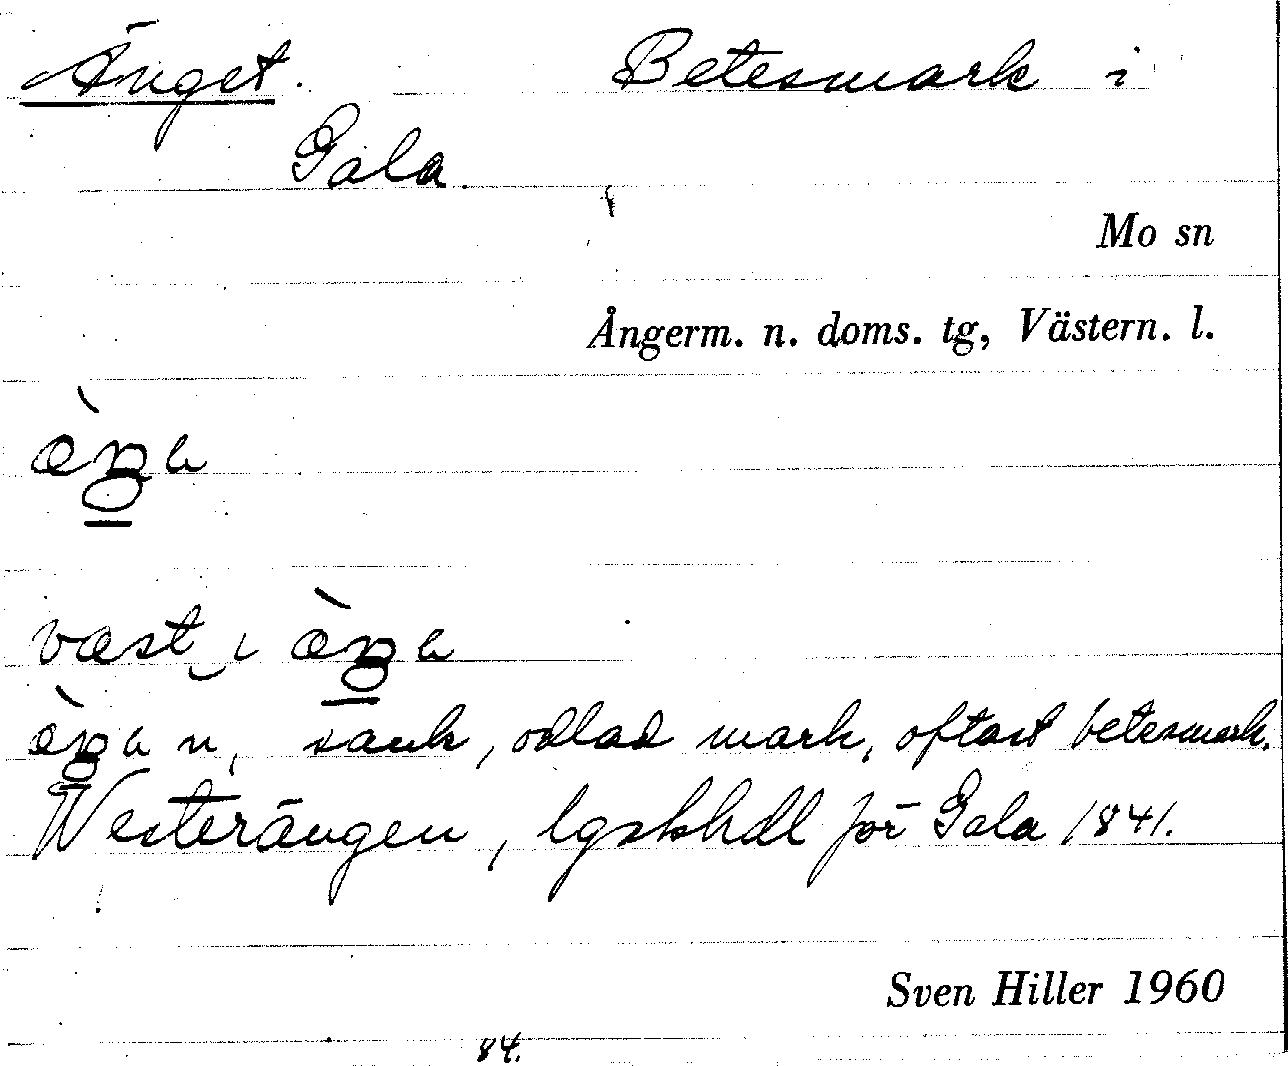 Änget. Betesmark i
Gala.
Mo sn
Ångerm. n. doms. tg, Västern. l.
væst i
n, sank, odlad mark, oftast betesmark.
Westerängen, lgskhdl för Gala 1841.
Sven Hiller 1960
84.